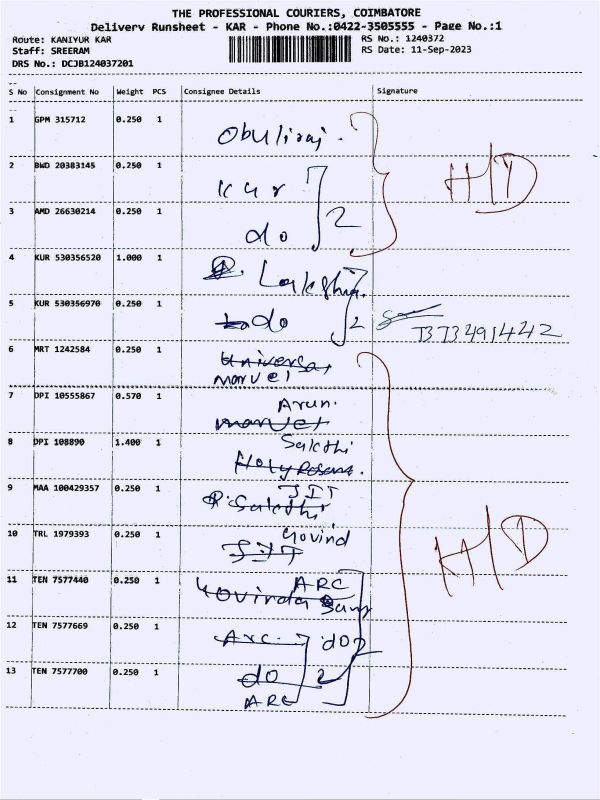 THE PROFESSIONAL COURIERS, COIMBATORE
Delivery Runsheet - KAR - Phone No.:0422-3505555 - Page No.:1
Route: KANIYUR KAR
RS No.: 1240372
Staff: SREERAM
RS Date: 11-Sep-2023
DRS No.: DCJB124037201
S No Consignment No Weight PCS Consignee Details Signature
1 GPM 315712 0.250 1 Obuliraj.
H/D
2 BWD 20383145 0.250 1 Kur
2
3 AMD 26630214 0.250 1 do
4 KUR 530356520 1.000 1 Lakshia.
5 KUR 530356970 0.250 1 do 2
7373491442
6 MRT 1242584 0.250 1 Universa,
Marvel
7 DPI 10555867 0.570 1 Arun.
Marvel
8 DPI 108890 1.400 1 Sakthi
Holy Rosana.
9 MAA 100429357 0.250 1 JIT
Sakthi
10 TRL 1979393 0.250 1 Govind
JIT
H/D
11 TEN 7577440 0.250 1 ARC
Govinda
12 TEN 7577669 0.250 1 Arc. do 2
13 TEN 7577700 0.250 1 do 2
ARC